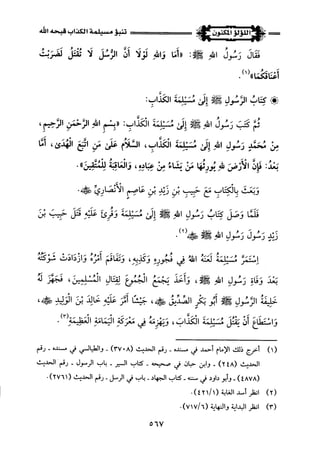 اللؤلؤ المكنون
تنبؤ مسيلمة الكذاب قبحه الله
فَقَالَ رَسُولُ اللهِ ﷺ: «أَمَا وَاللهِ لَوْلَا أَنَّ الرُّسُلَ لَا تُقْتَلُ لَضَرَبْتُ
أَعْنَاقَكُمَا»(١).
كِتَابُ الرَّسُولِ ﷺ إِلَى مُسَيْلِمَةَ الْكَذَّابِ:
ثُمَّ كَتَبَ رَسُولُ اللهِ ﷺ إِلَى مُسَيْلِمَةَ الْكَذَّابِ: «بِسْمِ اللهِ الرَّحْمَنِ الرَّحِيمِ،
مِنْ مُحَمَّدٍ رَسُولِ اللهِ إِلَى مُسَيْلِمَةَ الْكَذَّابِ، السَّلَامُ عَلَى مَنِ اتَّبَعَ الْهُدَى، أَمَّا
بَعْدُ: فَإِنَّ الْأَرْضَ لِلهِ يُورِثُهَا مَنْ يَشَاءُ مِنْ عِبَادِهِ، وَالْعَاقِبَةُ لِلْمُتَّقِينَ».
وَبَعَثَ بِالْكِتَابِ مَعَ حَبِيبِ بْنِ زَيْدِ بْنِ عَاصِمٍ الْأَنْصَارِيِّ ﵁.
فَلَمَّا وَصَلَ كِتَابُ رَسُولِ اللهِ ﷺ إِلَى مُسَيْلِمَةَ وَقُرِئَ عَلَيْهِ قَتَلَ حَبِيبَ بْنَ
زَيْدٍ رَسُولَ رَسُولِ اللهِ ﷺ(٢).
اسْتَمَرَّ مُسَيْلِمَةُ لَعَنَهُ اللهُ فِي فُجُورِهِ وَكَذِبِهِ، وَتَفَاقَمَ أَمْرُهُ وَازْدَادَتْ شَوْكَتُهُ
بَعْدَ وَفَاةِ رَسُولِ اللهِ ﷺ، وَأَخَذَ يَجْمَعُ الْجُمُوعَ لِقِتَالِ الْمُسْلِمِينَ، فَجَهَّزَ لَهُ
خَلِيفَةُ الرَّسُولِ ﷺ أَبُو بَكْرٍ الصِّدِّيقُ ﵁، جَيْشًا أَمَّرَ عَلَيْهِ خَالِدَ بْنَ الْوَلِيدِ ﵁،
وَاسْتَطَاعَ أَنْ يَقْتُلَ مُسَيْلِمَةَ الْكَذَّابَ، وَيَهْزِمَهُ فِي مَعْرَكَةِ الْيَمَامَةِ الْعَظِيمَةِ(٣).
(١) أخرج ذلك الإمام أحمد في مسنده - رقم الحديث (٣٧٠٨) - والطيالسي في مسنده - رقم
الحديث (٢٤٨) - وابن حبان في صحيحه - كتاب السير - باب الرسول - رقم الحديث
(٤٨٧٨) - وأبو داود في سننه - كتاب الجهاد - باب في الرسل - رقم الحديث (٢٧٦١).
(٢) انظر أسد الغابة (٤٢١/١).
(٣) انظر البداية والنهاية (٧١٧/٦).
٥٦٧